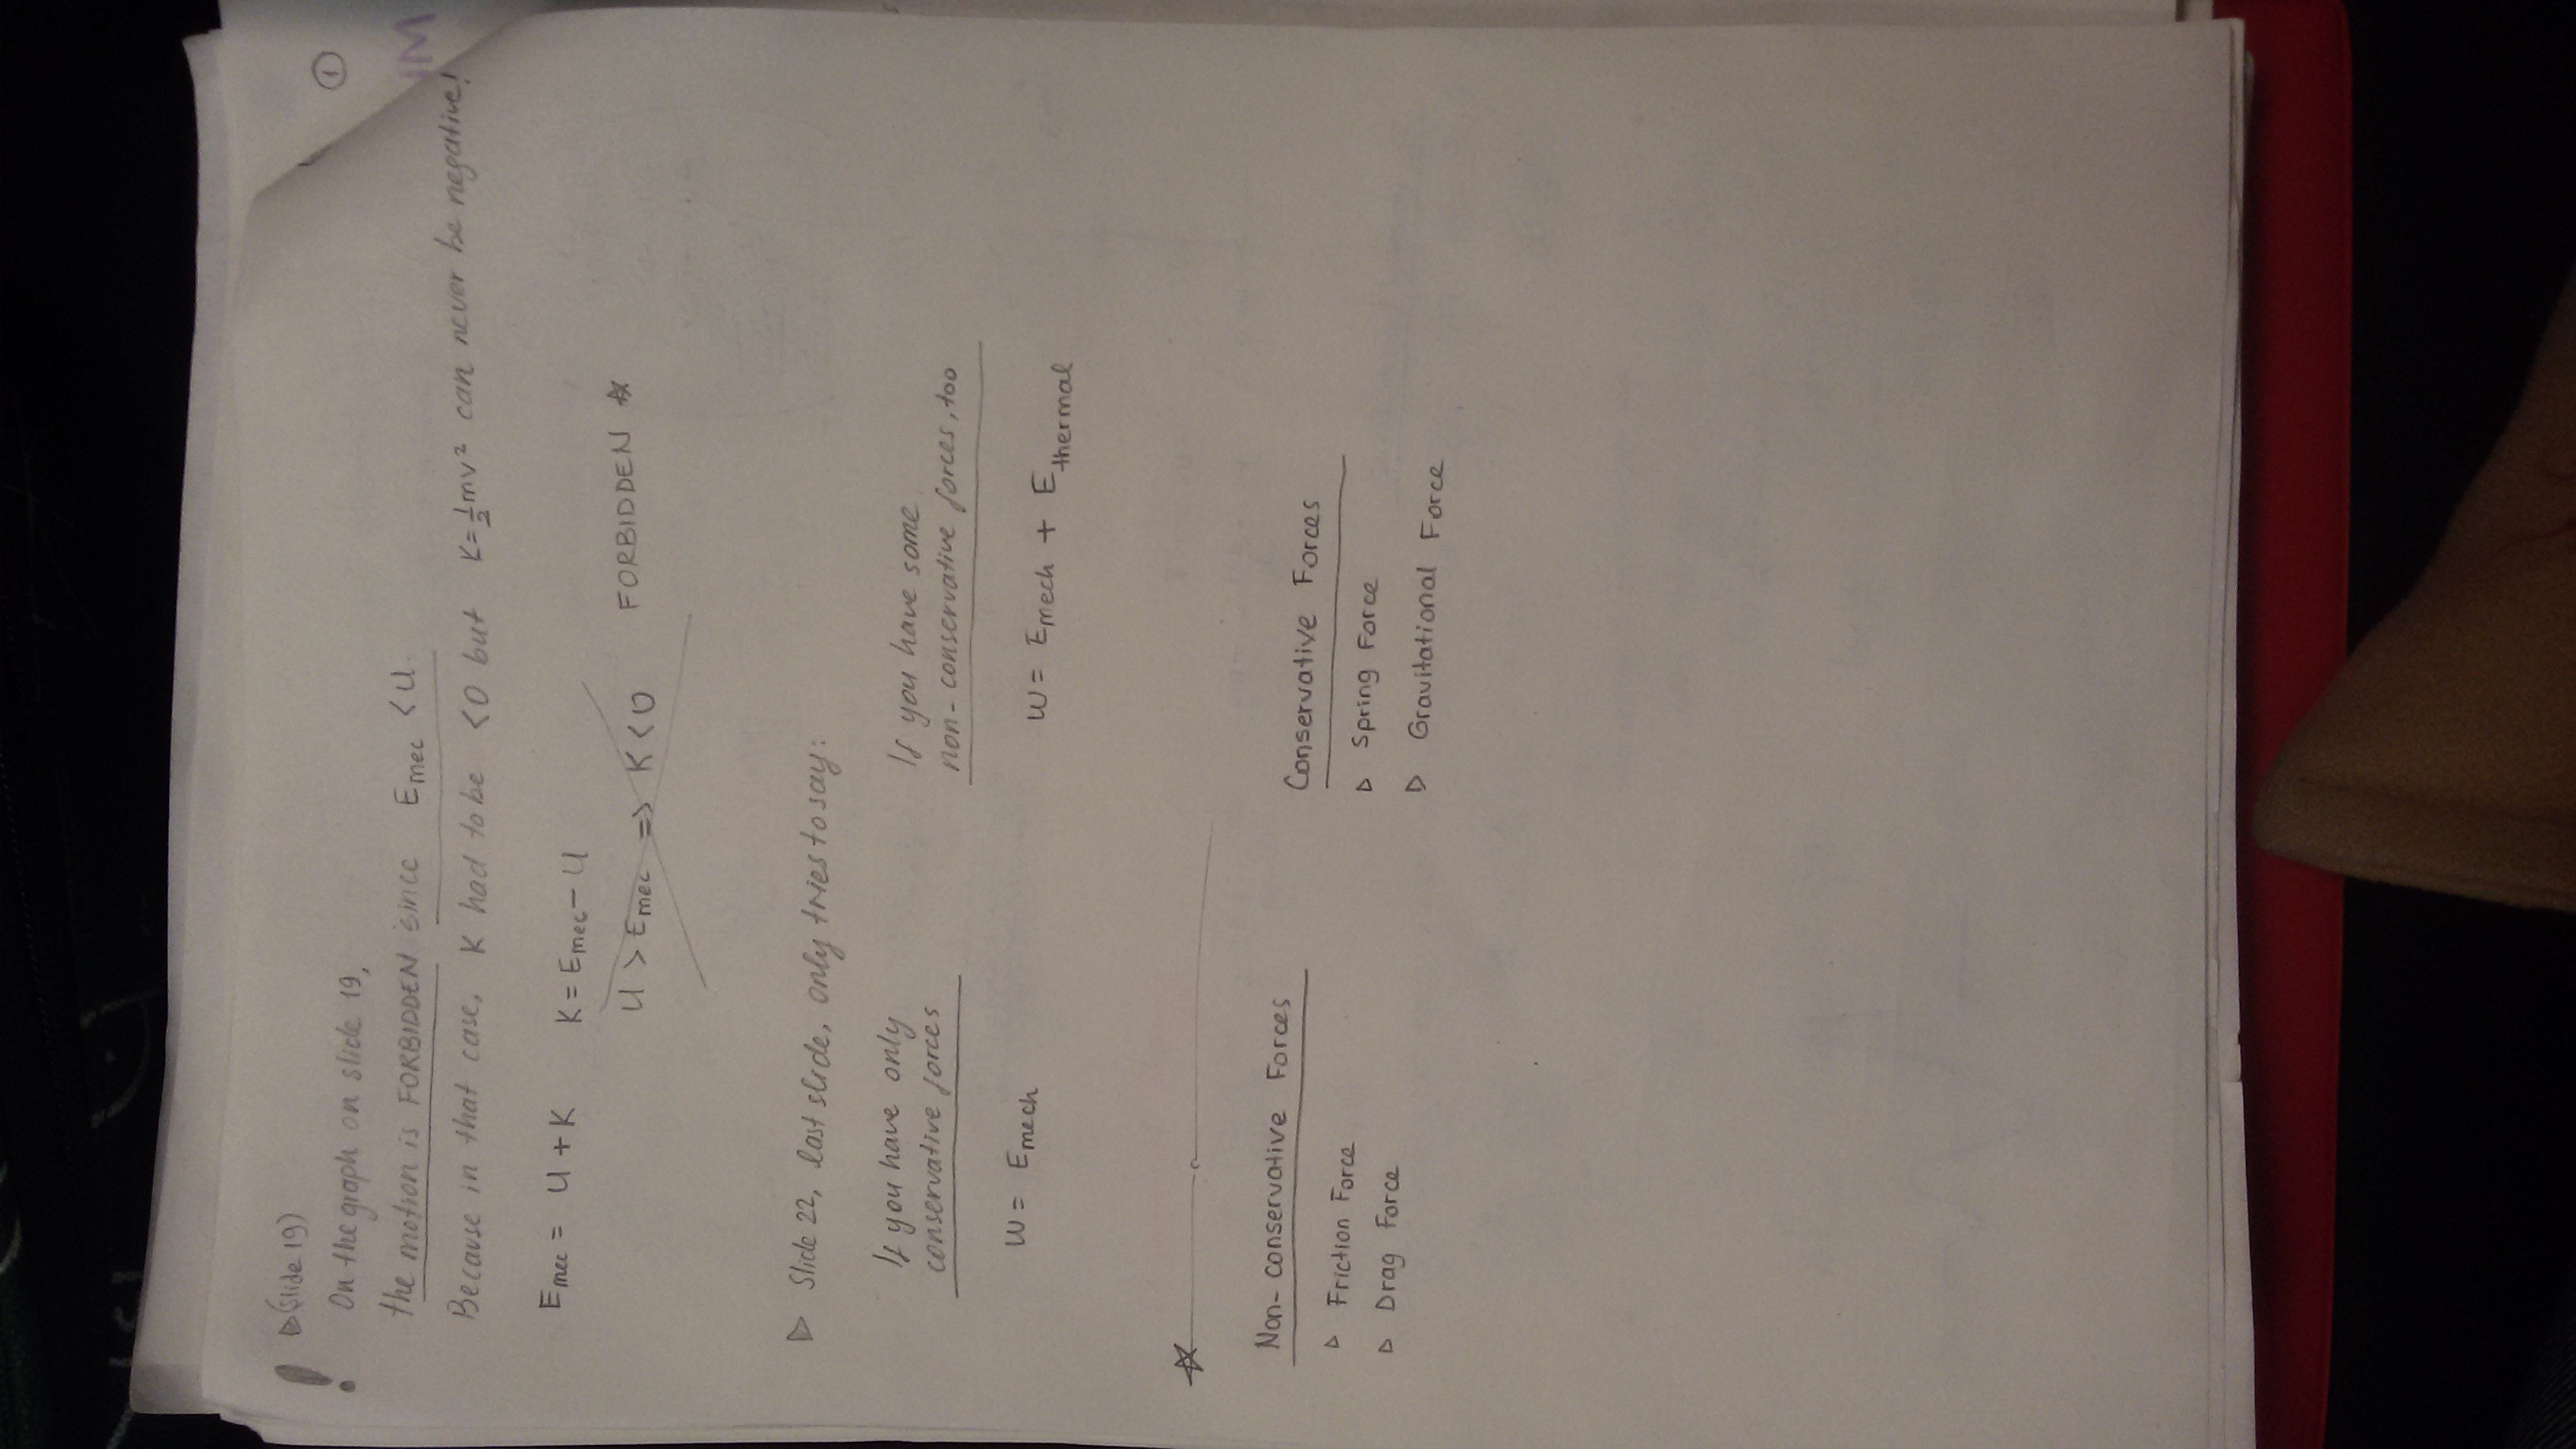 ▷(Slide 19)
①
On the graph on slide 19,
the motion is FORBIDDEN since Emec < U.
Because in that case, K had to be <0 but K=½mv² can never be negative!
Emec = U + K K = Emec - U
U > Emec => K < 0 FORBIDDEN ☆
▷ Slide 22, last slide, only tries to say:
If you have only
conservative forces
W = Emech
If you have some
non-conservative forces, too
W = Emech + Ethermal
☆
Non-conservative Forces
▷ Friction Force
▷ Drag Force
Conservative Forces
▷ Spring Force
▷ Gravitational Force